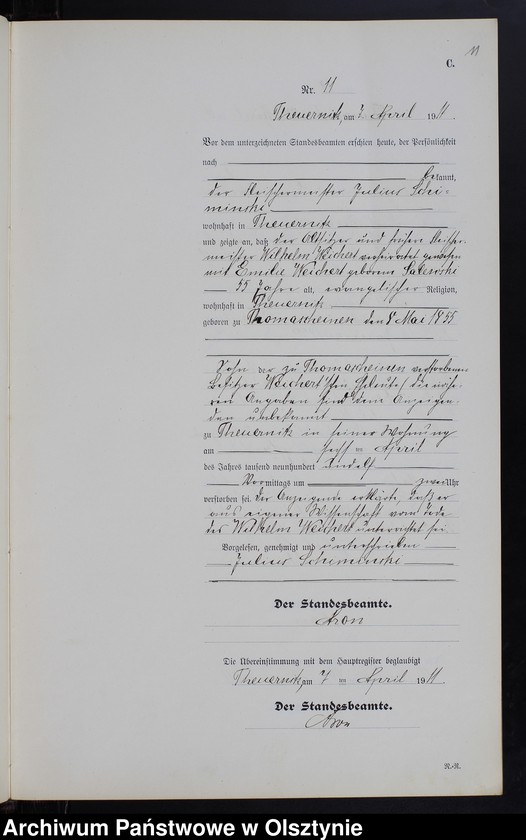 11
C.
Nr. 11
Theuernitz, am 7. April 1911.
Vor dem unterzeichneten Standesbeamten erschien heute, der Persönlichkeit
nach
bekannt,
der Fleischermeister Julius Schi-
minski
wohnhaft in Theuernitz
und zeigte an, daß der Altsitzer und frühere
meister Wilhelm Weichert verheiratet gewesen
mit Emilie Weichert geborenen
55 Jahre alt, evangelischer Religion,
wohnhaft in Theuernitz
geboren zu Thomascheinen den 8 Mai 1855
Sohn der zu Thomascheinen verstorbenen
Besitzer Weichert'schen Eheleute, die nähe-
ren Angaben sind dem Anzeigen-
den unbekannt
zu Theuernitz in seiner Wohnung
am sechsten April
des Jahres tausend neunhundert und elf
Vormittags um zwei Uhr
verstorben sei. Der Anzeigende erklärte, daß er
aus eigener Wissenschaft vom Tode
des Wilhelm Weichert unterrichtet sei.
Vorgelesen, genehmigt und unterschrieben
Julius Schiminski
Der Standesbeamte.
Aron
Die Übereinstimmung mit dem Hauptregister beglaubigt
Theuernitz, am 7 ten April 1911.
Der Standesbeamte.
Aron
R.-R.
Archiwum Państwowe w Olsztynie